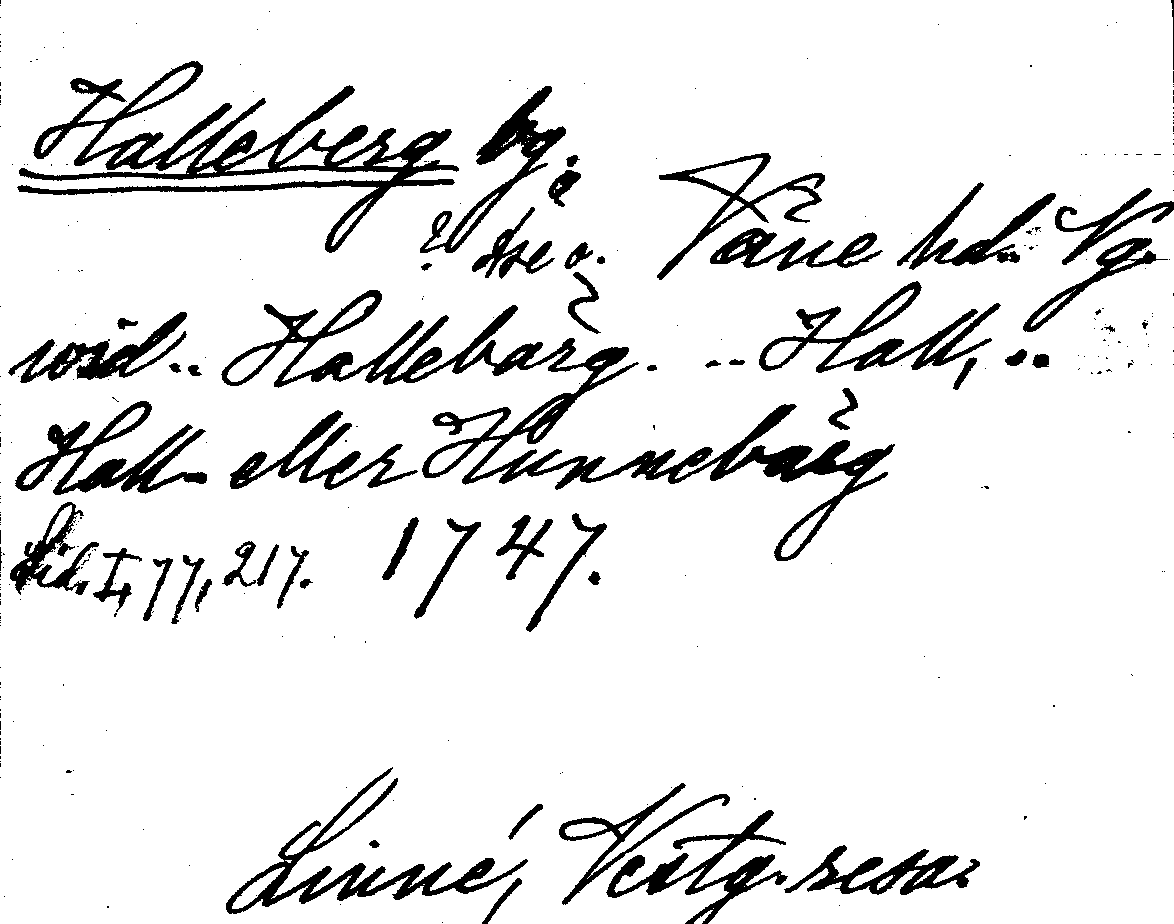 Halleberg bg.
? Åse o. Väne hd. Vg.
wid.. Hallebärg. .. Hall, ..
Hall- eller Hunnebärg
Sid. I, 77, 217. 1747.
Linné, Vestg. resa.